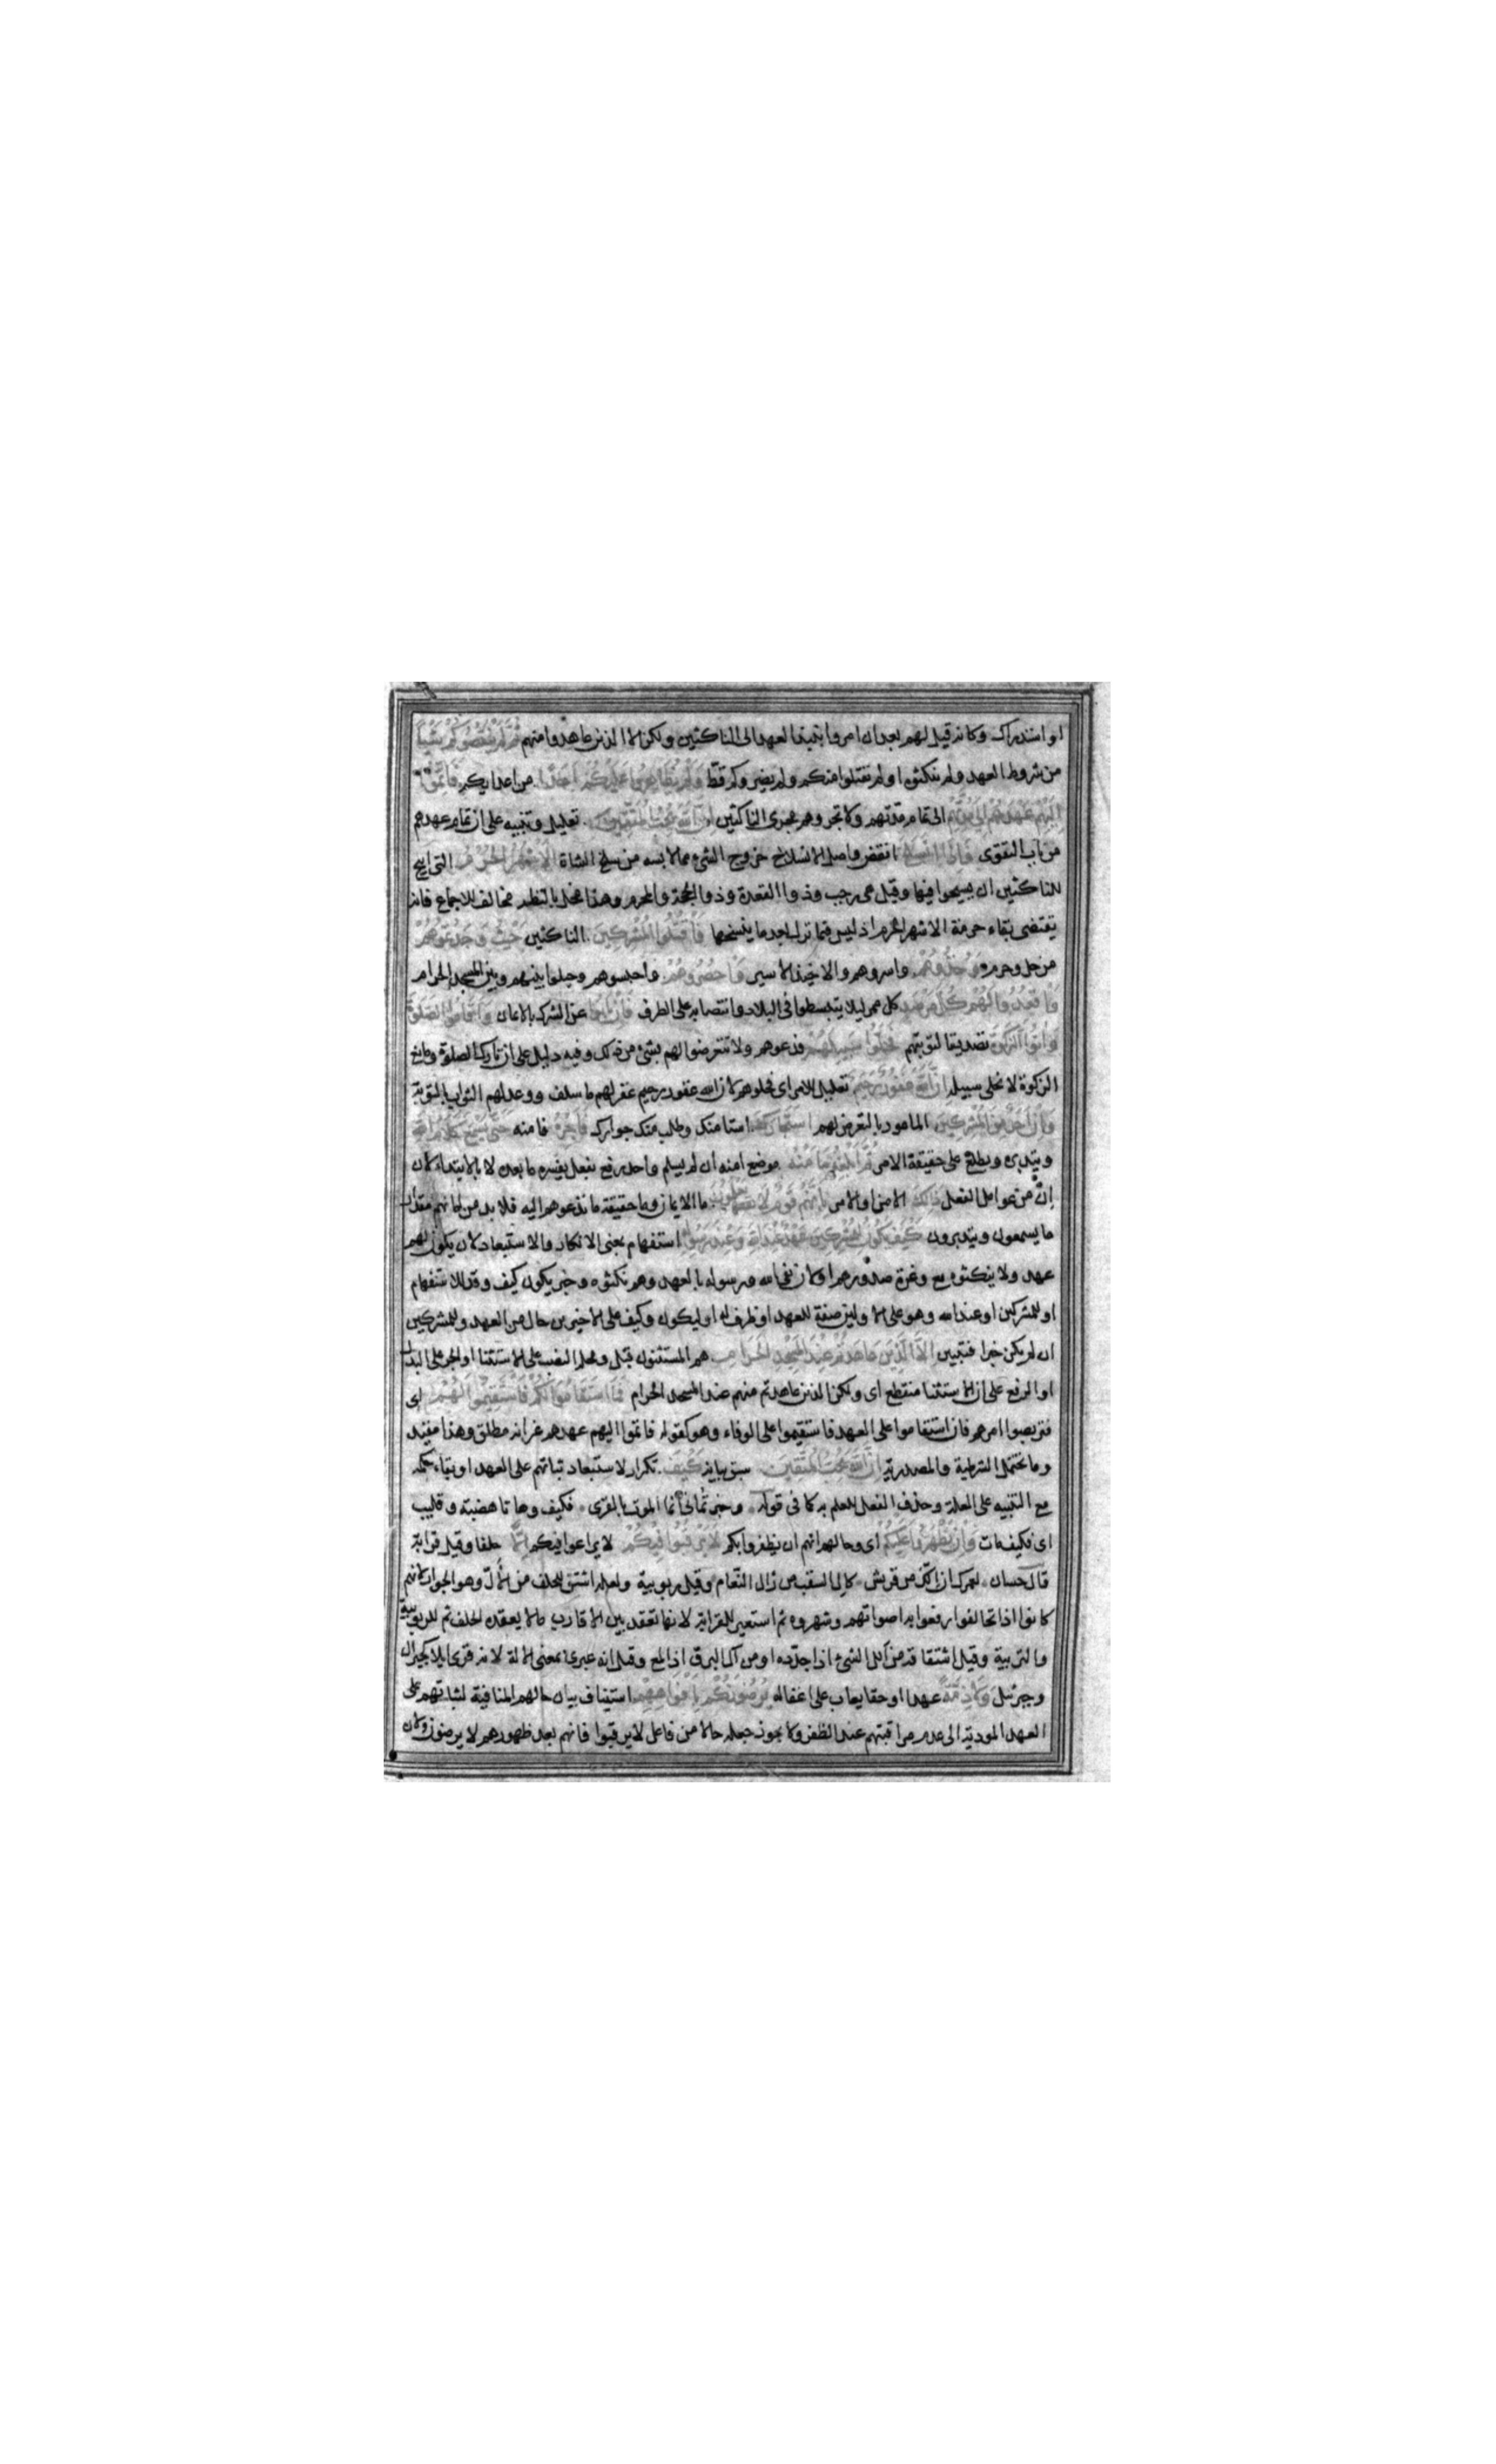 او استدراك وكانه قيل لهم بعد ان امروا بنبذ العهد الى الناكثين ولكن الذين عاهدوا منهم ثم لم ينقصوكم شيئا
من شروط العهد ولم ينكثوا ولم يقتلوا منكم ولم يضروكم قط ولم يظاهروا عليكم احدا من اعدايكم فاتموا
اليهم عهدهم الى مدتهم الى تمام مدتهم ولا تجروهم مجرى الناكثين ان الله يحب المتقين تعليل وتنبيه على ان تمام عهدهم
من باب التقوى فاذا انسلخ انقضى واصل الانسلاخ خروج الشئ مما لابسه من سلخ الشاة الاشهر الحرم التى ابيح
للناكثين ان يسيحوا فيها وقيل هى رجب وذوا القعدة وذوا الحجة والمحرم وهذا مخل بالنظم مخالف للاجماع فانه
يقتضى بقاء حرمة الاشهر الحرم اذ ليس فيما نزل بعد ما ينسخها فاقتلوا المشركين الناكثين حيث وجدتموهم
من حل وحرم وخذوهم واسروهم والاخيذ الاسير واحصروهم واحبسوهم وحيلوا بينهم وبين المسجد الحرام
واقعدوا لهم كل مرصد كل ممر ليلا يتبسطوا فى البلاد وانتصابه على الظرف فان تابوا عن الشرك بالايمان واقاموا الصلوة
واتوا الزكوة تصديقا لتوبتهم فخلوا سبيلهم فدعوهم ولا تتعرضوا لهم بشئ من ذلك وفيه دليل على ان تارك الصلوة ومانع
الزكوة لا يخلى سبيله ان الله غفور رحيم تعليل للامر اى فخلوهم لان الله غفور رحيم غفر لهم ما سلف ووعد لهم الثواب بالتوبة
وان احد من المشركين المامور بالتعرض لهم استجارك استامنك وطلب منك جوارك فاجره فامنه حتى يسمع كلام الله
ويتدبره ويطلع على حقيقة الامر ثم ابلغه مامنه موضع امنه ان لم يسلم واحد رفع بفعل يفسره ما بعده لا بالابتداء لان
ان من عوامل الفعل ذلك الامن او الامر بانهم قوم لا يعلمون ما الايمان وما حقيقة ما تدعوهم اليه فلا بد من امانهم مقدار
ما يسمعون ويتدبرون كيف يكون للمشركين عهد عند الله وعند رسوله استفهام بمعنى الانكار والاستبعاد لان يكون لهم
عهد ولا ينكثوه مع وغرة صدورهم او لان يفى الله ورسوله بالعهد وهم نكثوه وخبر يكون كيف وقدم للاستفهام
او للمشركين او عند الله وهو على الاولين صفة للعهد او ظرف له او ليكون وكيف على الاخيرين حال من العهد وللمشركين
ان لم يكن خبرا فتبيين الا الذين عاهدتم عند المسجد الحرام هم المستثنون قبل ومحله النصب على الاستثنا او الجر على البدل
او الرفع على ان الاستثنا منقطع اى ولكن الذين عاهدتم منهم عند المسجد الحرام فما استقاموا لكم فاستقيموا لهم اى
فتربصوا امرهم فان استقاموا على العهد فاستقيموا على الوفاء وهو كقوله فاتموا اليهم عهدهم غير انه مطلق وهذا مقيد
وما تحتمل الشرطية والمصدرية ان الله يحب المتقين سبق بيانه كيف تكرار لاستبعاد ثباتهم على العهد او بقاء حكمه
مع التنبيه على العلة وحذف الفعل للعلم به كما فى قوله وخبرتمانى انما الموت بالقرى فكيف وهاتا هضبة وقليب
اى فكيف مات وان يظهروا عليكم اى وحالهم انهم ان يظفروا بكم لا يرقبوا فيكم لا يراعوا فيكم الا حلفا وقيل قرابة
قال حسان لعمرك ان الك من قريش كال السقب من رال النعام وقيل ربوبية ولعله اشتق للحلف من الال وهو الجوار لانهم
كانوا اذا تحالفوا رفعوا به اصواتهم وشهروه ثم استعير للقرابة لانها تعقد بين الاقارب ما لا يعقده الحلف ثم للربوبية
والتربية وقيل اشتقاقه من الل الشئ اذا حدده او من ال البرق اذا لمع وقيل انه عبرى بمعنى الالة لانه قرى ايلا كجبرال
وجبرئيل ولا ذمة عهدا او حقا يعاب على اغفاله يرضونكم بافواههم استيناف بيان حالهم المنافية لثباتهم على
العهد المودية الى عدم مراقبتهم عند الظفر ولا يجوز جعله حالا من فاعل لا يرقبوا فانهم بعد ظهورهم لا يرضون ولان